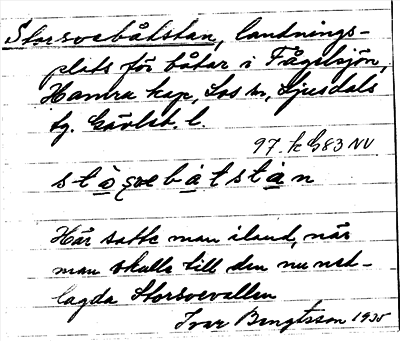 Storsvebåtstan, landnings-
plats för båtar i Fågelsjön,
Hamra kap, Los sn, Ljusdals
tg. Gävleb. l.
97. k G83 NV
båtstån
Här satte man iland, när
man skulle till den nu ned-
lagda Storsvevallen
Ivar Bengtsson 1935